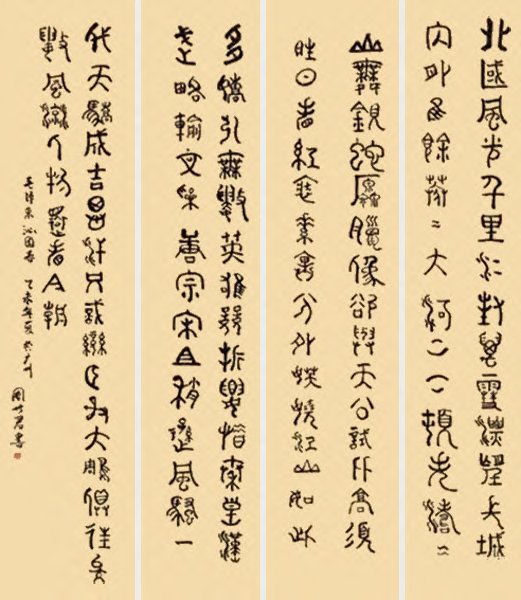 北國風光千里冰封萬雪飄望長城
内外惟餘莽〻大河上下頓失滔〻
山舞銀蛇原馳蠟像欲與天公試比高須
晴日看紅裝素裹分外妖嬈江山如此
多嬌引無數英雄競折腰惜秦皇漢
武略輸文采唐宗宋祖稍遜風騷一
代天驕成吉思汗只識彎弓射大鵰俱往矣
數風流人物還看今朝
毛澤東沁園春 乙未年夏於
書